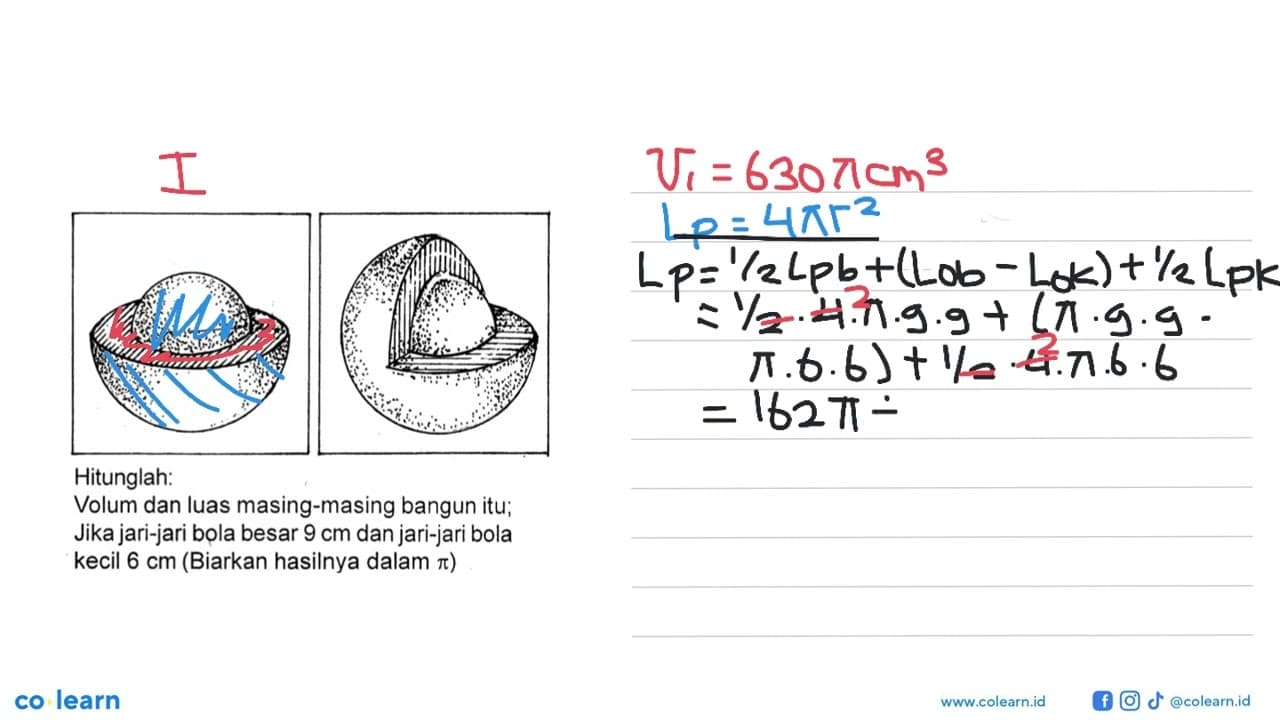 I
Hitunglah:
Volum dan luas masing-masing bangun itu;
Jika jari-jari bola besar 9 cm dan jari-jari bola
kecil 6 cm (Biarkan hasilnya dalam π)
V₁ = 630π cm³
Lp = 4πr²
Lp = 1/2 Lpb + (Lob - Lok) + 1/2 Lpk
= 1/2 · 4 2 · π · 9 · 9 + (π · 9 · 9 -
π · 6 · 6) + 1/2 · 4 2 · π · 6 · 6
= 162π ÷
co learn
www.colearn.id @colearn.id